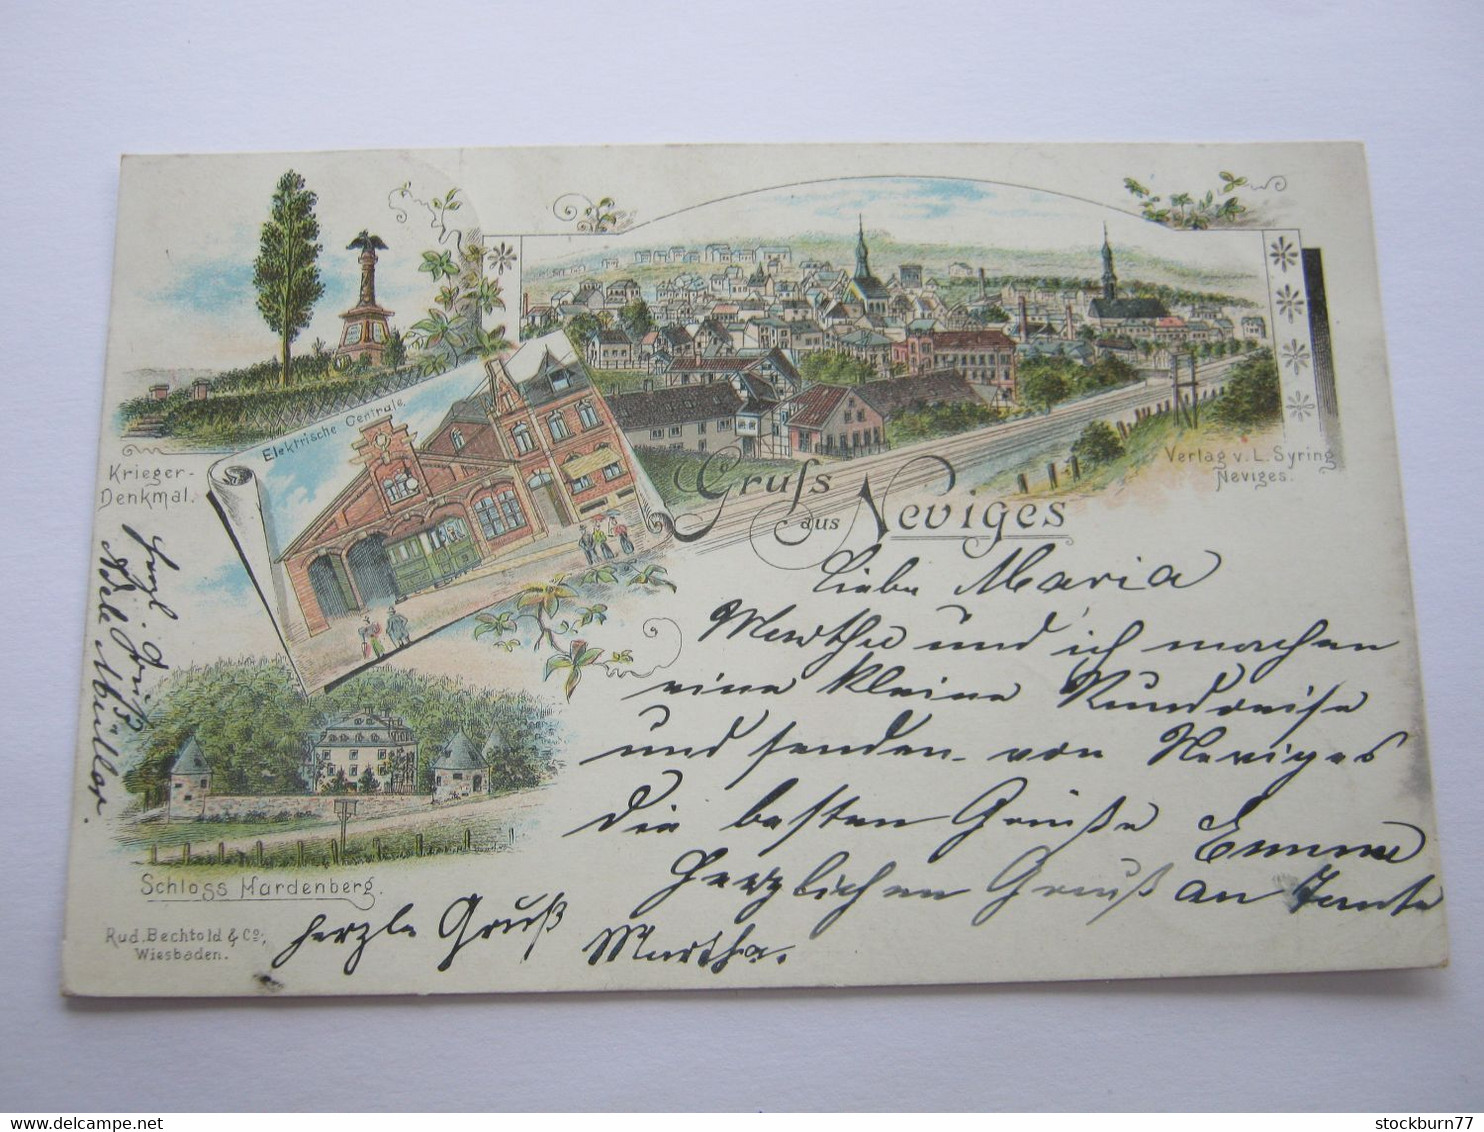 Krieger-
Denkmal.
Elektrische Centrale.
Verlag v. L. Syring
Neviges.
Gruss
aus Neviges
Schloss Hardenberg.
Rud. Bechtold & Co.,
Wiesbaden.
Liebe Maria
Marthe und ich machen
eine kleine Rundreise
und senden von Neviges
die besten Grüße Emma
Herzlichen Gruß an Tante
Martha.
herzl. Gruß
Herzl. Gruß
Müller.
www.delcampe.net
stockburn77